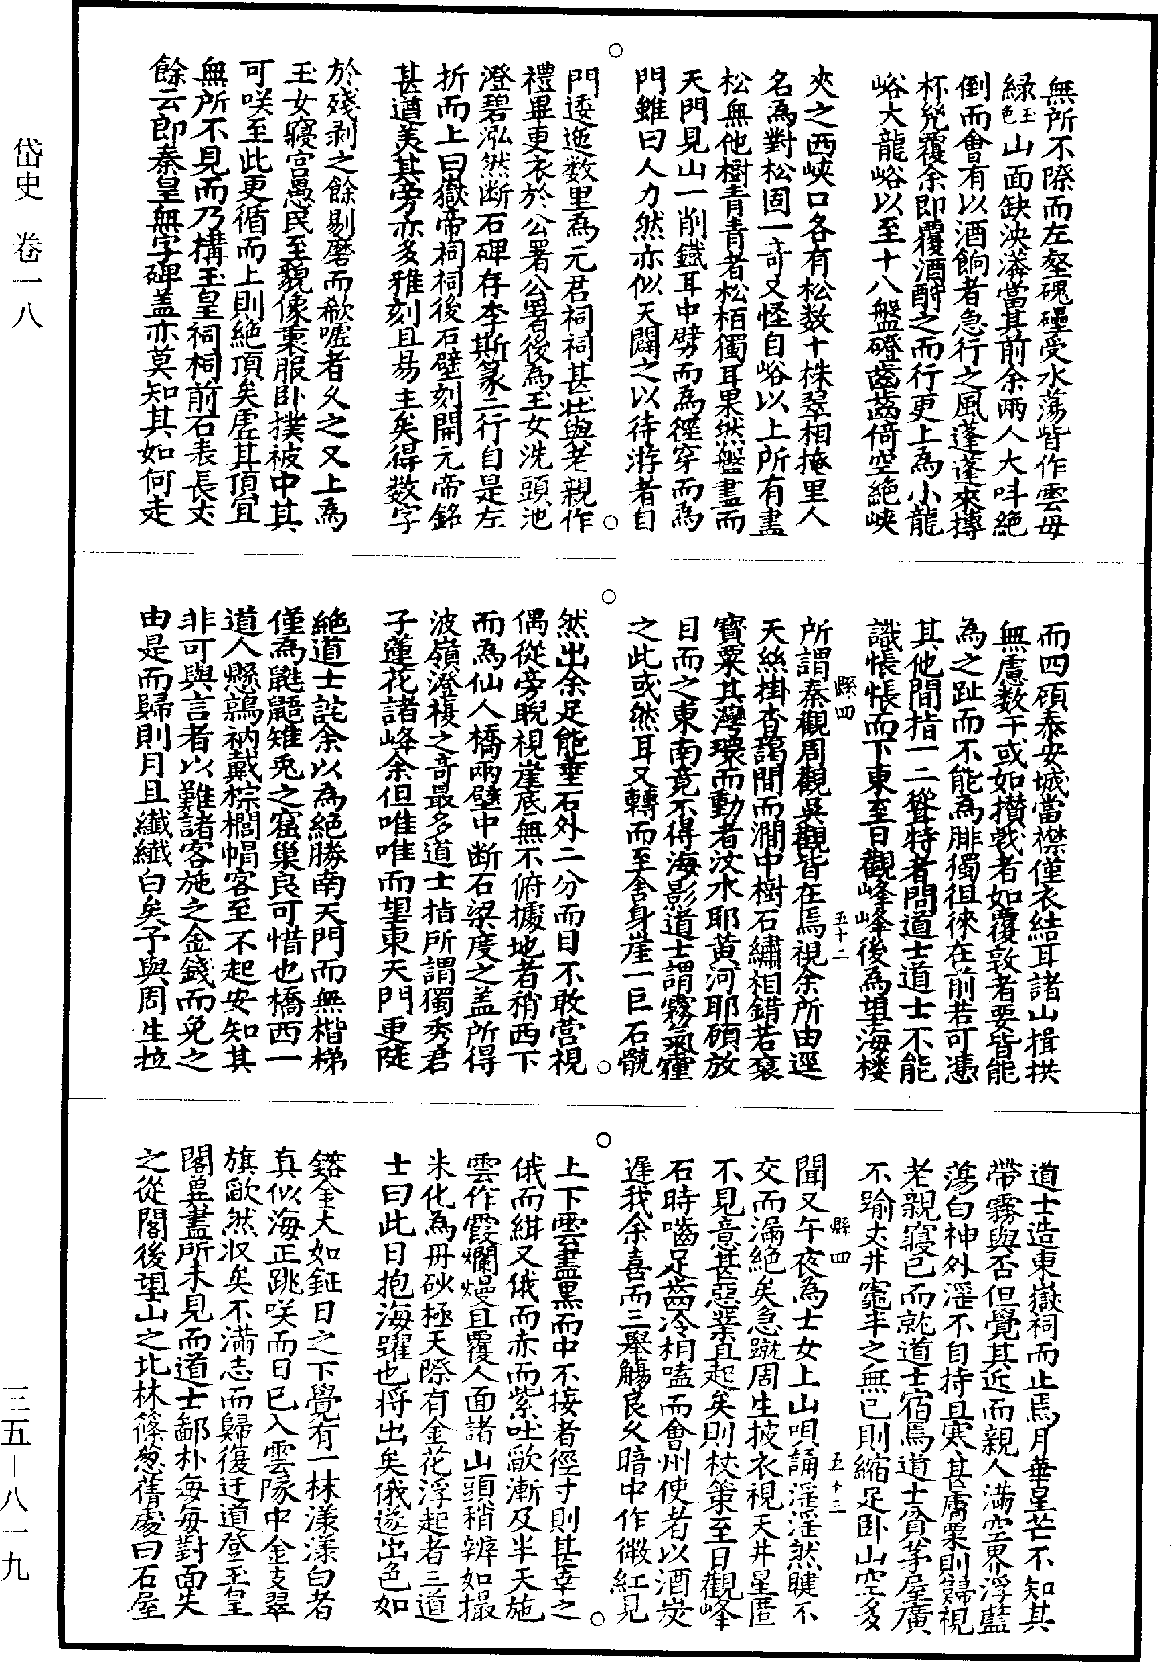 岱史 卷一八
無所不際而左壑磈礧受水蕩皆作雲母
綠色玉山面缺泱漭當其前余兩人大呌絕
倒而會有以酒餉者急行之風蓬蓬來摶
杯兕覆余即覆酒酹之而行更上為小龍
峪大龍峪以至十八盤磴齒齒倚空絕峽
夾之西峽口各有松数十株翠相掩里人
名為對松固一奇又怪自峪以上所有盡
松無他樹青青者松栢獨耳果然盤盡而
天門見山一削鐵耳中劈而為徑穿而為
門雖曰人力然亦似天闢之以待游者自
門逶迤数里為元君祠祠甚壮與老親作
禮畢更衣於公署公署後為玉女洗頭池
澄碧泓然断石碑存李斯篆二行自是左
折而上曰嶽帝祠祠後石壁刻開元帝銘
甚遒美其旁亦多雅刻且易主矣得数字
於殘剥之餘剔磨而欷嘘者久之又上為
玉女寢宮愚民至貌像裹服卧襆被中其
可咲至此更循而上則絕頂矣虛其頂宜
無所不見而乃構玉皇祠祠前石表長丈
餘云即秦皇無字碑盖亦莫知其如何走
而四碩泰安城當襟僅衣結耳諸山揖拱
無慮数千或如攢戟者如覆敦者要皆能
為之趾而不能為腓獨徂徠在前若可憑
其他間指一二聳特者問道士道士不能
識悵悵而下東至日觀峰峰後為望海楼
所謂秦觀周觀吳觀皆在焉視余所由逕
天絲掛杳藹間而澗中樹石繡相錯若裒
寶粟其灣環而動者汶水耶黄河耶碩放
目而之東南竟不得海影道士謂霧氣䨪
之此或然耳又轉而至舍身崖一巨石骫
然出余足能垂石外二分而目不敢营視
偶從旁睨視崖底無不俯據地者稍西下
而為仙人橋兩壁中断石梁度之盖所得
波嶺澄複之奇最多道士指所謂獨秀君
子蓮花諸峰余但唯唯而望東天門更陡
絕道士詫余以為絕勝南天門而無楷梯
僅為鼪鼯雉兎之窟巢良可惜也橋西一
道人懸鶉衲戴棕櫚帽客至不起安知其
非可與言者以難諸客施之金錢而免之
由是而歸則月且纖纖白矣予與周生拉
道士造東嶽祠而止焉月華皇芒不知其
帶霧與否但覺其近而親人滿空界浮藍
蕩白神外滛不自持且寒甚膚栗則歸視
老親寢已而就道士宿焉道士貧茅屋廣
不踰丈井竈半之無已則縮足卧山空多
聞又午夜為士女上山唄誦滛滛然睫不
交而漏絕矣急蹴周生披衣視天井星匿
不見意甚惡業且起矣則杖策至日觀峰
石時嚙足齒冷相嗑而會州使者以酒炭
遅我余喜而三舉觴良久暗中作微紅見
上下雲盡黒而中不接者徑寸則甚幸之
俄而緋又俄而赤而紫吐歐漸及半天施
雲作霞斕熳且覆人面諸山頭稍辨如撮
米化為丹砂極天際有金花浮起者三道
士曰此日抱海躍也将出矣俄遂出色如
鎔金大如鉦日之下覺有一抹漾漾白者
真似海正跳咲而日已入雲隊中金支翠
旗歐然収矣不滿志而歸復迂道登玉皇
閣兾盡所未見而道士鄙朴每每對面失
之從閣後望山之北林篠葱蒨處曰石屋
縣四
五十二
縣四
五十三
三五—八一九